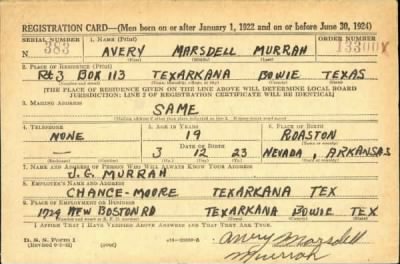 REGISTRATION CARD—(Men born on or after January 1, 1922 and on or before June 30, 1924)
SERIAL NUMBER 1. Name (Print) ORDER NUMBER
383 AVERY MARSDELL MURRAH 13300X
(First) (Middle) (Last)
2. Place of Residence (Print)
Rt 3 BOX 113 TEXARKANA BOWIE TEXAS
[THE PLACE OF RESIDENCE GIVEN ON THE LINE ABOVE WILL DETERMINE LOCAL BOARD
JURISDICTION; LINE 2 OF REGISTRATION CERTIFICATE WILL BE IDENTICAL]
3. Mailing Address
SAME
4. Telephone 5. Age in Years 6. Place of Birth
NONE 19 ROASTON
Date of Birth
— 3 12 23 NEVADA, ARKANSAS
7. Name and Address of Person Who Will Always Know Your Address
J. G. MURRAH
8. Employer's Name and Address
CHANCE-MOORE TEXARKANA TEX
9. Place of Employment or Business
1924 NEW BOSTON RD TEXARKANA BOWIE TEX
I Affirm That I Have Verified Above Answers and That They Are True.
D. S. S. Form 1
Avery Marsdell
Murrah